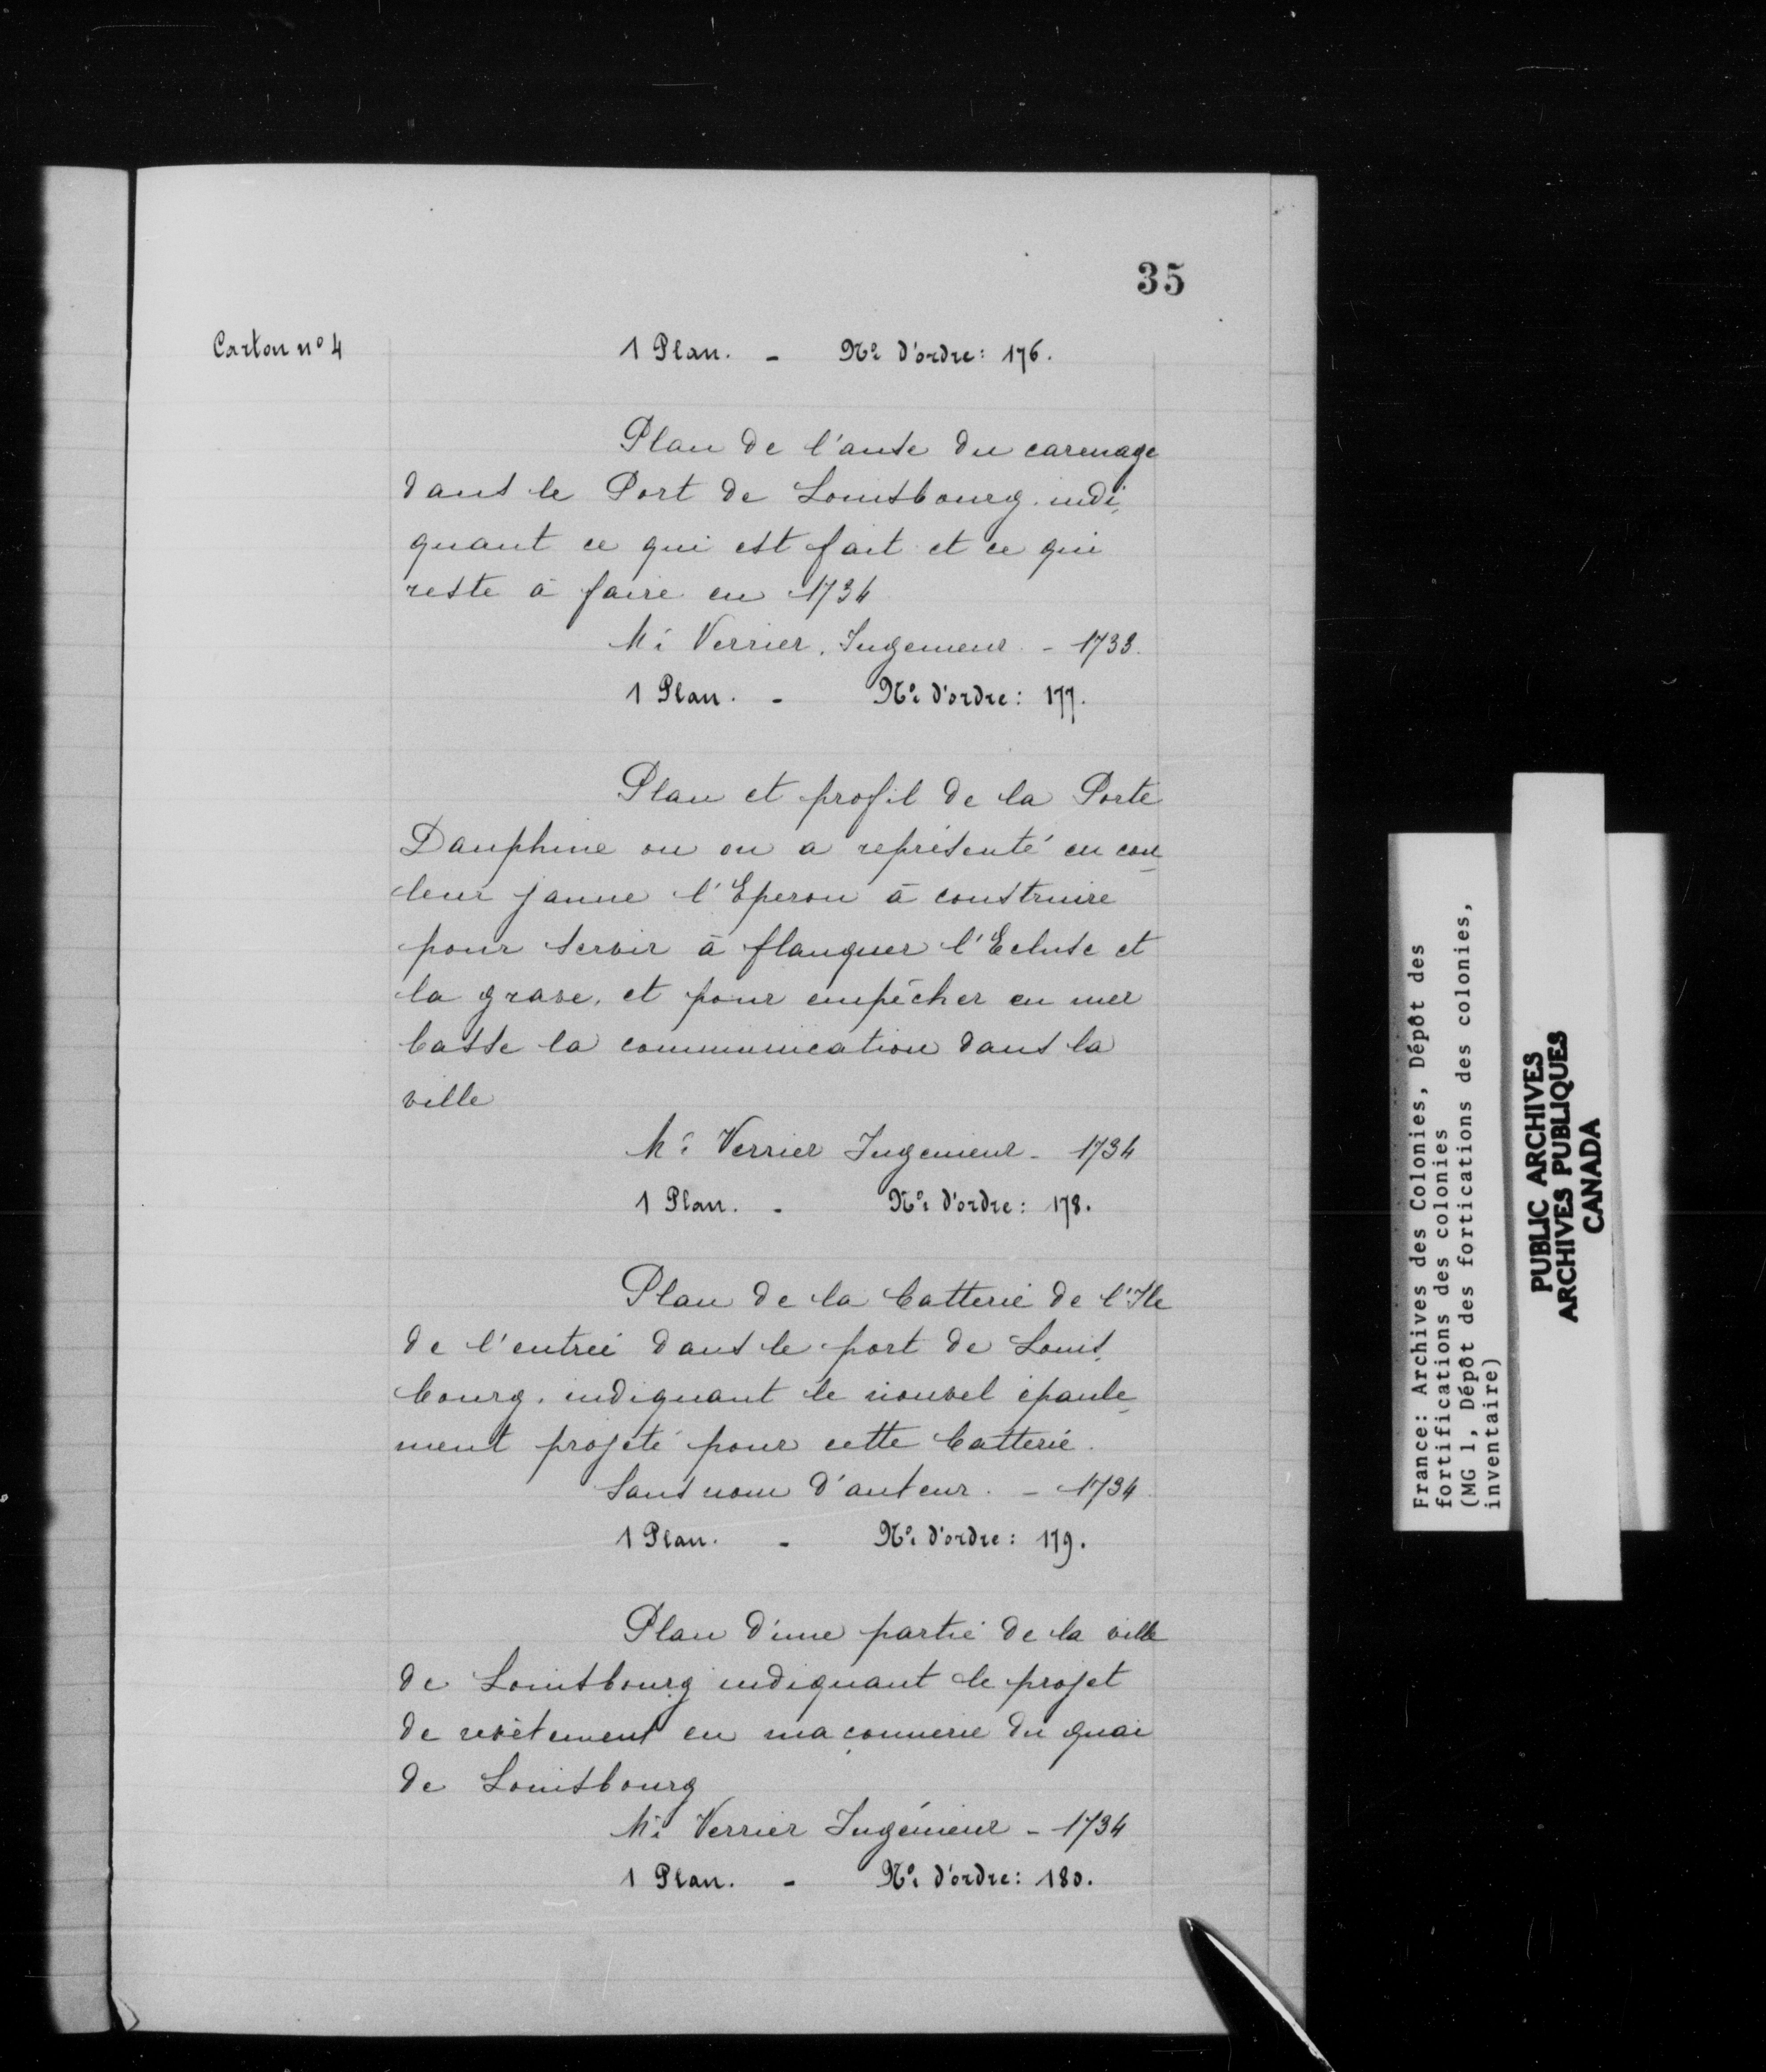 35
Carton nº 4
1 Plan. - Nº d'ordre: 176.
Plan de l'anse du carenage
dans le Port de Louisbourg. indi
quant ce qui est fait et ce qui
reste à faire en 1734
Mr Verrier, Ingenieur. - 1733.
1 Plan. - Nº d'ordre: 177.
Plan et profil de la Porte
Dauphine ou on a représenté en cou
leur jaune l'Eperon à construire
pour servir à flanquer l'Ecluse et
la grave, et pour empêcher en mer
basse la communication dans la
ville
Mr Verrier Ingenieur - 1734
1 Plan. - Nº d'ordre: 178.
Plan de la batterie de l'Ile
de l'entrée dans le port de Louis
bourg, indiquant le nouvel épaule
ment projeté pour cette batterie.
Sans nom d'auteur. - 1734
1 Plan. - Nº d'ordre: 179.
Plan d'une partie de la ville
de Louisbourg indiquant le projet
de revêtement en maçonnerie du quai
de Louisbourg
Mr Verrier Ingénieur - 1734
1 Plan. - Nº d'ordre: 180.
France: Archives des Colonies, Dépôt des
fortifications des colonies
(MG 1, Dépôt des fortications des colonies,
inventaire)
PUBLIC ARCHIVES
ARCHIVES PUBLIQUES
CANADA